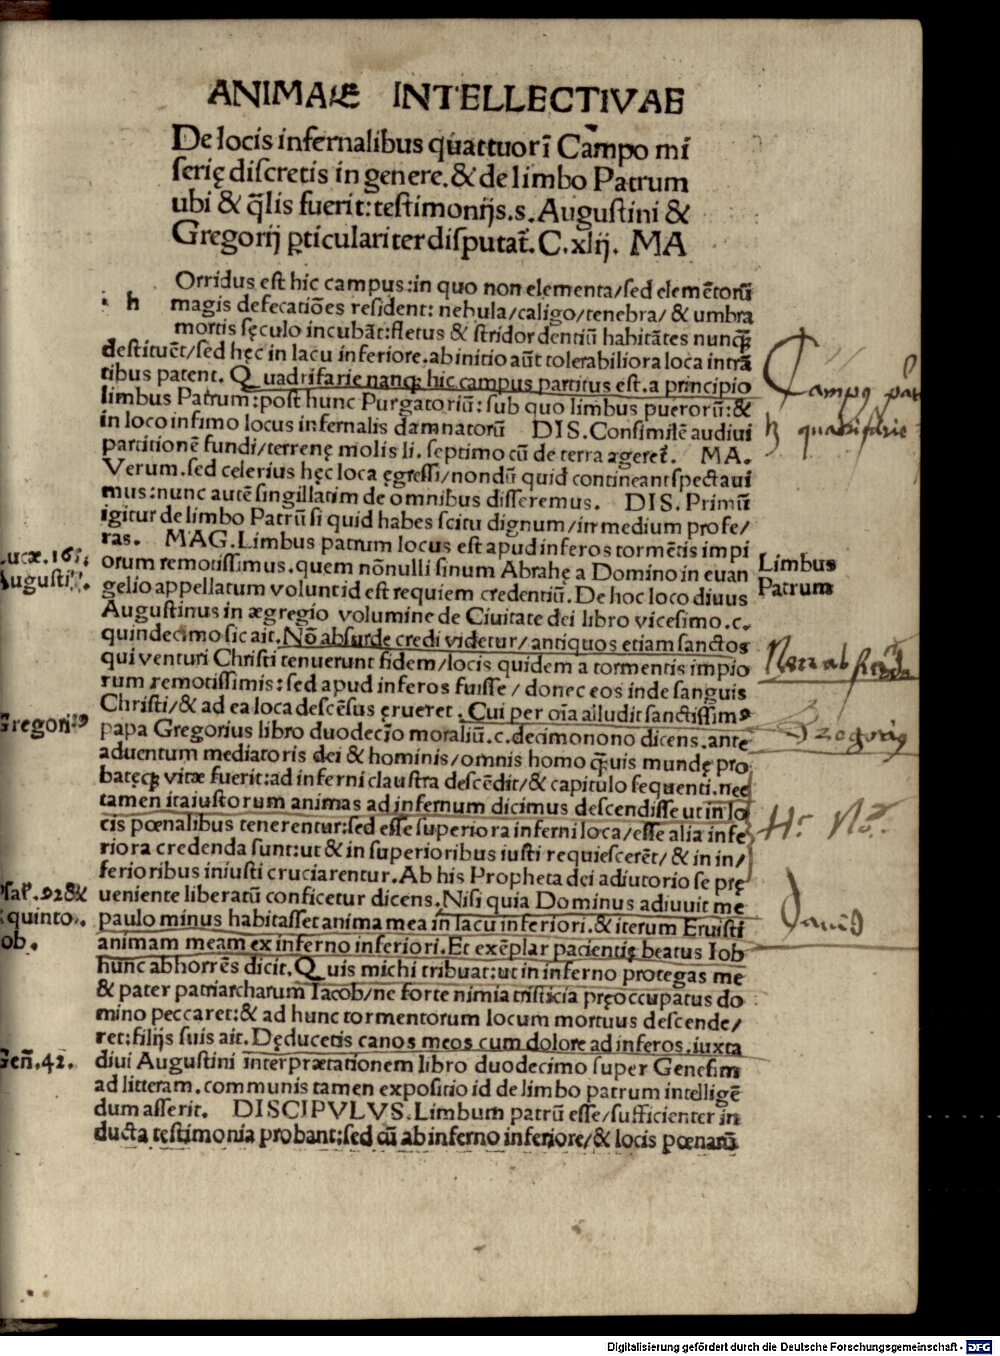 ANIMAE INTELLECTIVAE
De locis infernalibus quattuor ī Campo mi
serię discretis in genere. & de limbo Patrum
ubi & q̄lis fuerit: testimonijs. s. Augustini &
Gregorij ꝑticulariter disputat᷑. C. xlij. MA
Orridus est hic campus: in quo non elementa/ sed elemētorū
h magis defecatiōes resident: nebula/ caligo/ tenebra/ & umbra
mortis sęculo incubāt: fletus & stridor dentiū habitātes nunqȝ
destituēt/ sed hęc in lacu inferiore. ab initio aūt tolerabiliora loca intrā
tibus patent. Quadrifarie nanqȝ hic campus partitus est. a principio
limbus Patrum: post hunc Purgatoriū: sub quo limbus puerorū: &
in loco infimo locus infernalis damnatorū DIS. Consimilē audiui
partitionē fundi/ terrenę molis li. septimo cū de terra ageret᷑. MA.
Verum. sed celerius hęc loca ęgressi/ nondū quid contineant spectaui
mus: nunc autē singillatim de omnibus disseremus. DIS. Primū
igitur de limbo Patrū si quid habes scitu dignum/ in medium profe/
ras. MAG. Limbus patrum locus est apud inferos tormētis impi
orum remotissimus. quem nōnulli sinum Abrahę a Domino in euan
gelio appellatum volunt id est requiem credentiū. De hoc loco diuus
Augustinus in ægregio volumine de Ciuitate dei libro vicesimo. c.
quindecimo sic ait. Nō absurde credi videtur/ antiquos etiam sanctos
qui venturi Christi tenuerunt fidem/ locis quidem a tormentis impio
rum remotissimis: sed apud inferos fuisse/ donec eos inde sanguis
Christi/ & ad ea loca descēsus ęrueret. Cui per oīa alludit sanctissimꝰ
papa Gregorius libro duodecīo moraliū. c. decimonono dicens. ante
aduentum mediatoris dei & hominis/ omnis homo q̄uis mundę pro
batęqȝ vitæ fuerit: ad inferni claustra descēdit/ & capitulo sequenti. nec
tamen ita iustorum animas ad infernum dicimus descendisse ut in lo
cis pœnalibus tenerentur: sed esse superiora inferni loca/ esse alia infe
riora credenda sunt: ut & in superioribus iusti requiescerēt/ & in in/
ferioribus iniusti cruciarentur. Ab his Propheta dei adiutorio se prę
ueniente liberatū conficetur dicens. Nisi quia Dominus adiuuit me
paulo minus habitasset anima mea in lacu inferiori. & iterum Eruisti
animam meam ex inferno inferiori. Et exēplar pacientię beatus Iob
hunc abhorrēs dicit. Quis michi tribuat: ut in inferno protegas me
& pater patriarcharum Iacob/ ne forte nimia tristicia pręoccupatus do
mino peccaret: & ad hunc tormentorum locum mortuus descende/
ret: filijs suis ait. Dęducetis canos meos cum dolore ad inferos. iuxta
diui Augustini interprætationem libro duodecimo super Genesim
ad litteram. communis tamen expositio id de limbo patrum intelligē
dum asserit. DISCIPVLVS. Limbum patrū esse/ sufficienter in
ducta testimonia probant: sed cū ab inferno inferiore/ & locis pœnarū
ucæ. 16.
Augusti
Gregoriꝰ
Psal. 92 &
quinto.
ob.
Geñ. 42.
Limbus
Patrum
Campꝰ
quadrifarie
Gregoriꝰ
Dauid
Digitalisierung gefördert durch die Deutsche Forschungsgemeinschaft - DFG